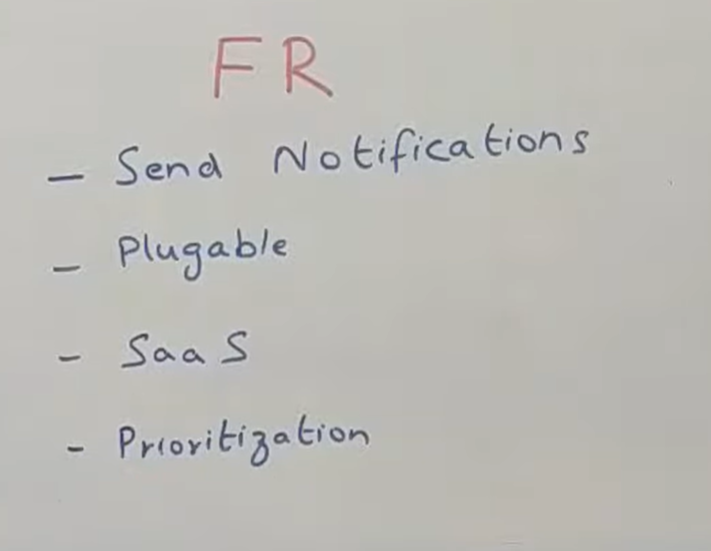 FR
- Send Notifications
- Plugable
- SaaS
- Prioritization